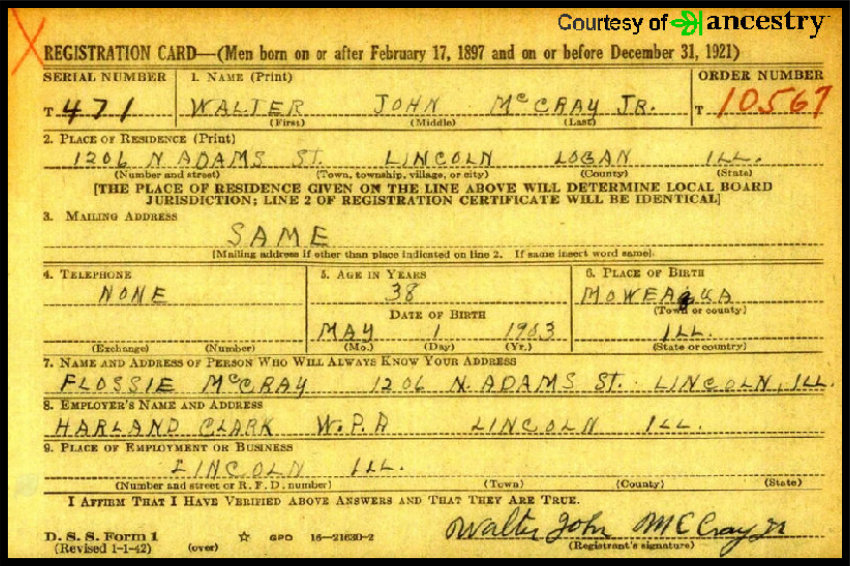 Courtesy of ancestry
REGISTRATION CARD—(Men born on or after February 17, 1897 and on or before December 31, 1921)
SERIAL NUMBER 1. NAME (Print) ORDER NUMBER
T 471 WALTER JOHN McCRAY JR. T 10567
(First) (Middle) (Last)
2. PLACE OF RESIDENCE (Print)
1206 N. ADAMS ST. LINCOLN LOGAN ILL.
(Number and street) (Town, township, village, or city) (County) (State)
[THE PLACE OF RESIDENCE GIVEN ON THE LINE ABOVE WILL DETERMINE LOCAL BOARD
JURISDICTION; LINE 2 OF REGISTRATION CERTIFICATE WILL BE IDENTICAL]
3. MAILING ADDRESS
SAME
[Mailing address if other than place indicated on line 2. If same insert word same]
4. TELEPHONE 5. AGE IN YEARS 6. PLACE OF BIRTH
NONE 38 MOWEAQUA
DATE OF BIRTH (Town or county)
MAY 1 1903 ILL.
(Exchange) (Number) (Mo.) (Day) (Yr.) (State or country)
7. NAME AND ADDRESS OF PERSON WHO WILL ALWAYS KNOW YOUR ADDRESS
FLOSSIE McCRAY 1206 N. ADAMS ST. LINCOLN, ILL.
8. EMPLOYER'S NAME AND ADDRESS
HARLAND CLARK W.P.A LINCOLN ILL.
9. PLACE OF EMPLOYMENT OR BUSINESS
LINCOLN ILL.
(Number and street or R. F. D. number) (Town) (County) (State)
I AFFIRM THAT I HAVE VERIFIED ABOVE ANSWERS AND THAT THEY ARE TRUE.
Walter John McCray Jr
D. S. S. Form 1
(Revised 1-1-42) (over) ☆ GPO 16—21630-2 (Registrant's signature)